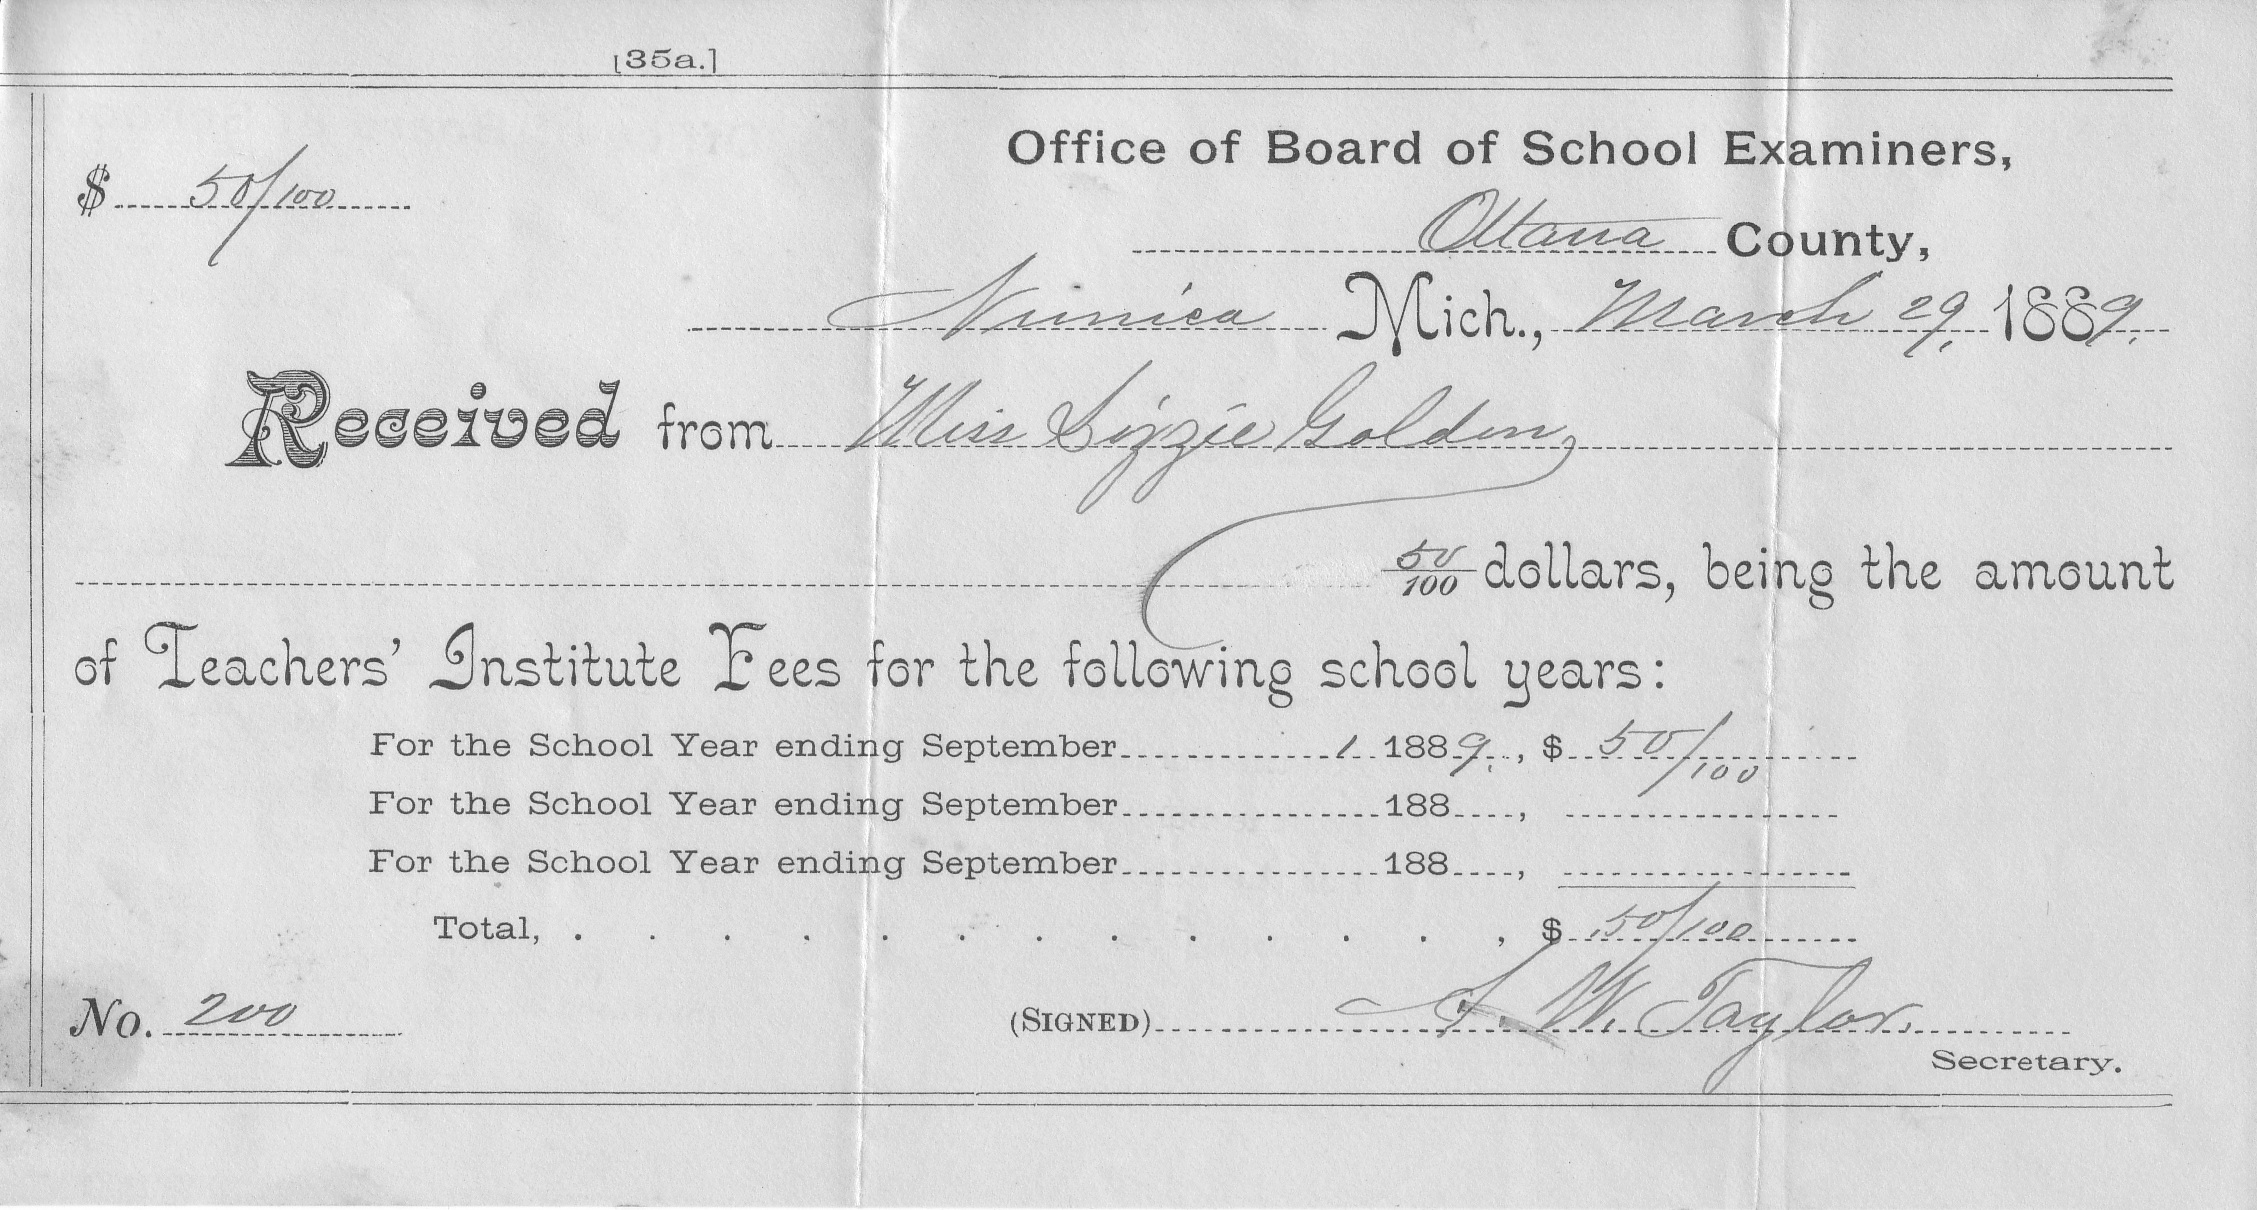 [35a.]
Office of Board of School Examiners,
$ 50/100
Ottawa County,
Nunica Mich., March 29, 1889.
Received from Miss Lizzie Golden,
50/100 dollars, being the amount
of Teachers' Institute Fees for the following school years:
For the School Year ending September 1 1889., $ 50/100
For the School Year ending September 188 ,
For the School Year ending September 188 ,
Total, . . . . . . . . . . . . , $ .50/100
No. 200 (SIGNED) A. W. Taylor.
Secretary.